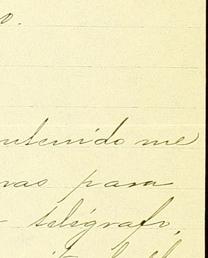 o.
ntenido me
nas para
telégrafo,